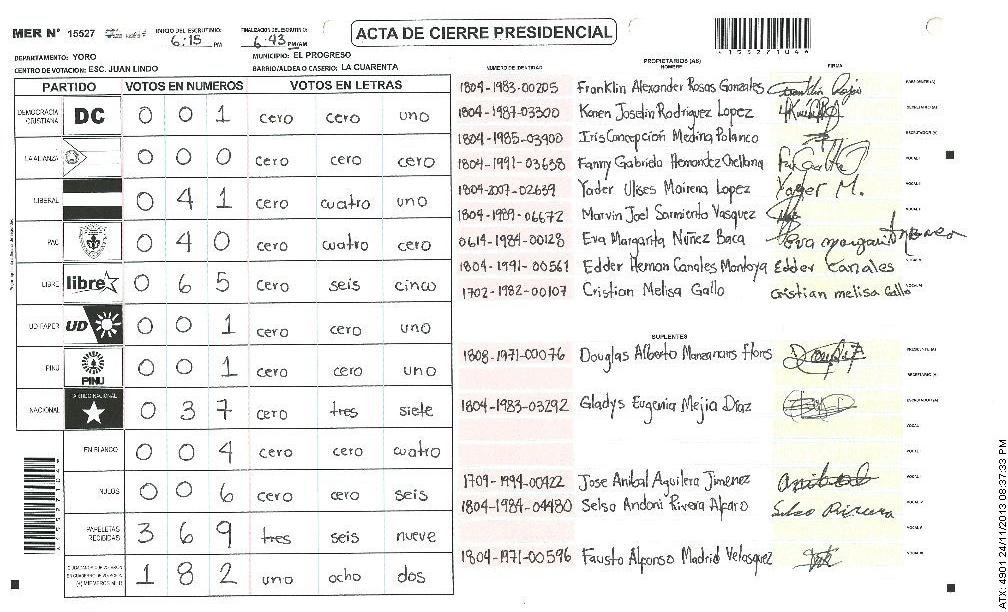 MER N° 15527 INICIO DEL ESCRUTINIO: 6:15 PM FINALIZACION DEL ESCRUTINIO: 6:43 PM/AM
ACTA DE CIERRE PRESIDENCIAL
DEPARTAMENTO: YORO MUNICIPIO: EL PROGRESO
CENTRO DE VOTACION: ESC. JUAN LINDO BARRIO/ALDEA O CASERIO: LA CUARENTA
PARTIDO VOTOS EN NUMEROS VOTOS EN LETRAS
DEMOCRACIA CRISTIANA DC 0 0 1 cero cero uno
LA ALIANZA 0 0 0 cero cero cero
LIBERAL 0 4 1 cero cuatro uno
PAC 0 4 0 cero cuatro cero
LIBRE libre 0 6 5 cero seis cinco
UD FAPER UD 0 0 1 cero cero uno
PINU PINU 0 0 1 cero cero uno
NACIONAL PARTIDO NACIONAL 0 3 7 cero tres siete
EN BLANCO 0 0 4 cero cero cuatro
NULOS 0 0 6 cero cero seis
PAPELETAS RECIBIDAS 3 6 9 tres seis nueve
1 8 2 uno ocho dos
NUMERO DE IDENTIDAD PROPIETARIOS (AS) NOMBRE FIRMA
1804-1983-00205 Franklin Alexander Rosas Gonzales
1804-1987-03300 Karen Joselin Rodriguez Lopez
1804-1985-03900 Iris Concepción Medina Polanco
1804-1991-03638 Fanny Gabriela Hernandez Orellana
1804-2007-02639 Yader Ulises Mairena Lopez Yader M.
1804-1989-06672 Marvin Joel Sarmiento Vasquez
0614-1984-00128 Eva Margarita Nuñez Baca Eva margarita
1804-1991-00561 Edder Hernan Canales Montoya Edder Canales
1702-1982-00107 Cristian Melisa Gallo Cristian melisa Gallo
SUPLENTES
1808-1971-00076 Douglas Alberto Manzanares Flores
1804-1983-03292 Gladys Eugenia Mejia Díaz
1709-1994-00422 Jose Anibal Aguilera Jimenez anibal
1804-1984-04480 Selso Andoni Rivera Alfaro Selso Rivera
1804-1971-00596 Fausto Alfonso Madrid Velasquez
ATX: 4901 24/11/2013 08:37:33 PM